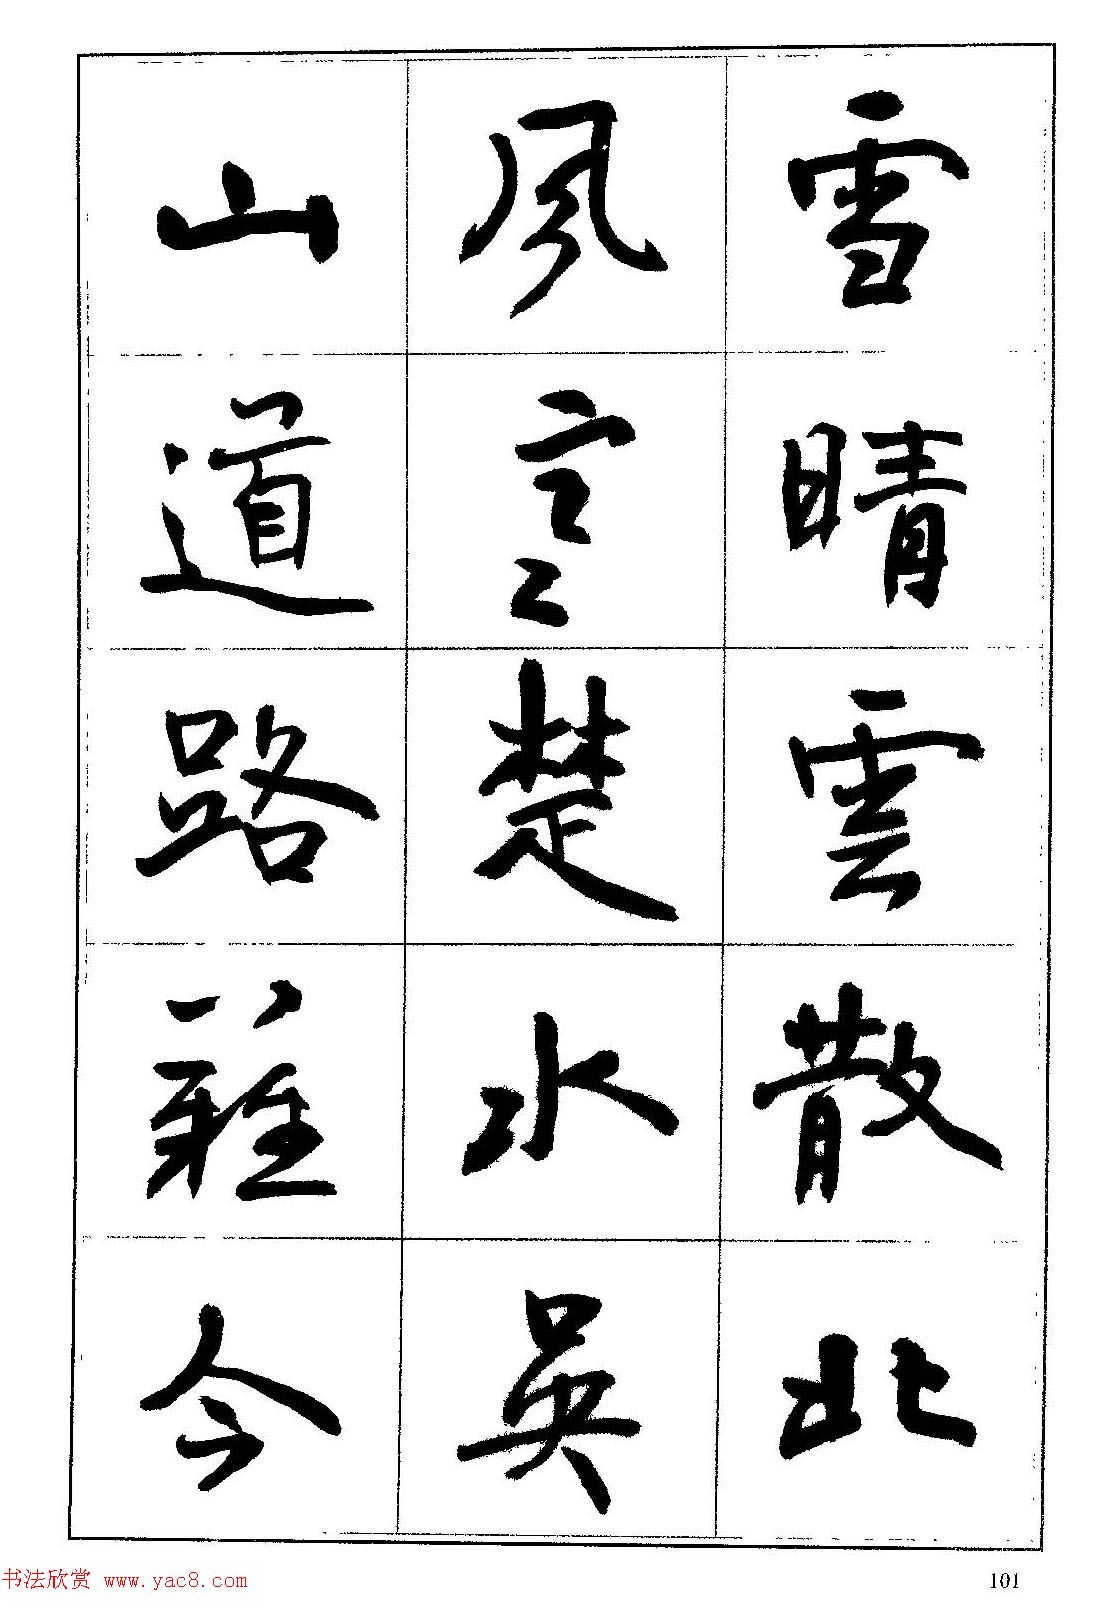 雪晴雲散北
風寒楚水吳
山道路難今
书法欣赏 www.yac8.com
101